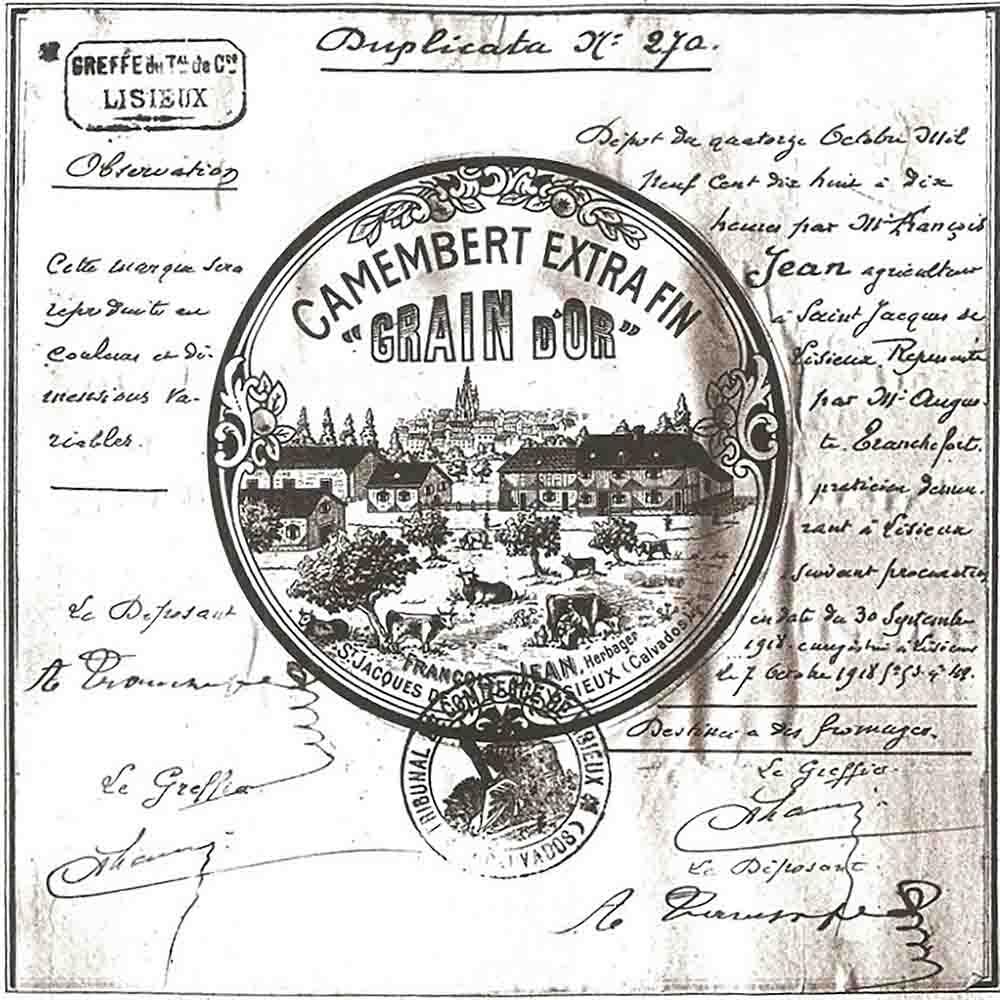 Duplicata Nº 270.
GREFFE du Tᴬᴸ de Cᶜᵉ
LISIEUX
Observation
Cette marque sera
reproduite en
couleurs et di-
mensions va-
riables.
Le Déposant
Le Greffier
CAMEMBERT EXTRA FIN
"GRAIN D'OR"
FRANÇOIS JEAN, Herbager
Sᵗ JACQUES DE LISIEUX (Calvados)
TRIBUNAL DE COMMERCE DE LISIEUX
(CALVADOS)
Dépot du quatorze Octobre Mil
Neuf Cent dix huit à Dix
heures par Mʳ François
Jean agriculteur
à Saint Jacques de
Lisieux Représenté
par Mʳ Augus-
te Branchefort.
praticien demeu-
rant à Lisieux
suivant procuration
en date du 30 Septembre
1918. enregistré à Lisieux
le 7 Octobre 1918
Destinée à des fromages.
Le Greffier
Le Déposant